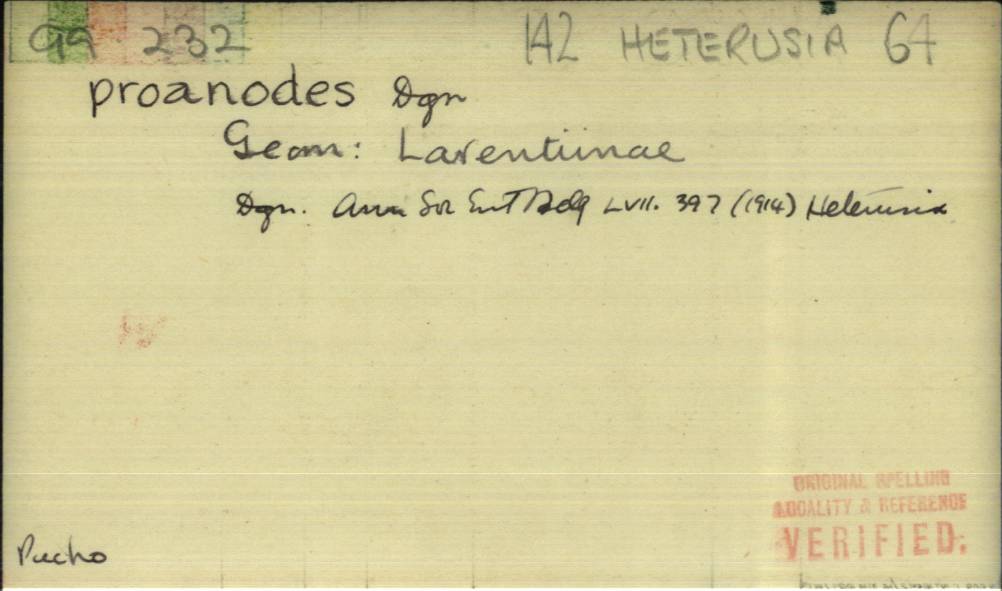 99 232 142 HETERUSIA 64
proanodes Dgn
Geom: Larentiinae
Dgn. Ann Soc Ent Belg LVII. 397 (1914) Heterusia
ORIGINAL SPELLING
LOCALITY & REFERENCE
VERIFIED.
Pucho